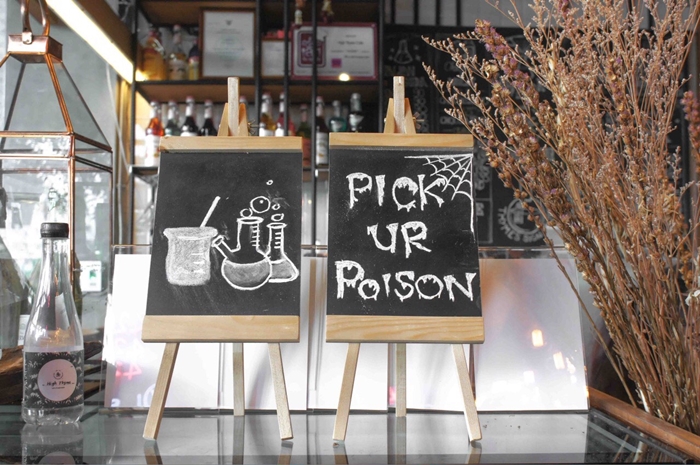 PICK
UR
POISON